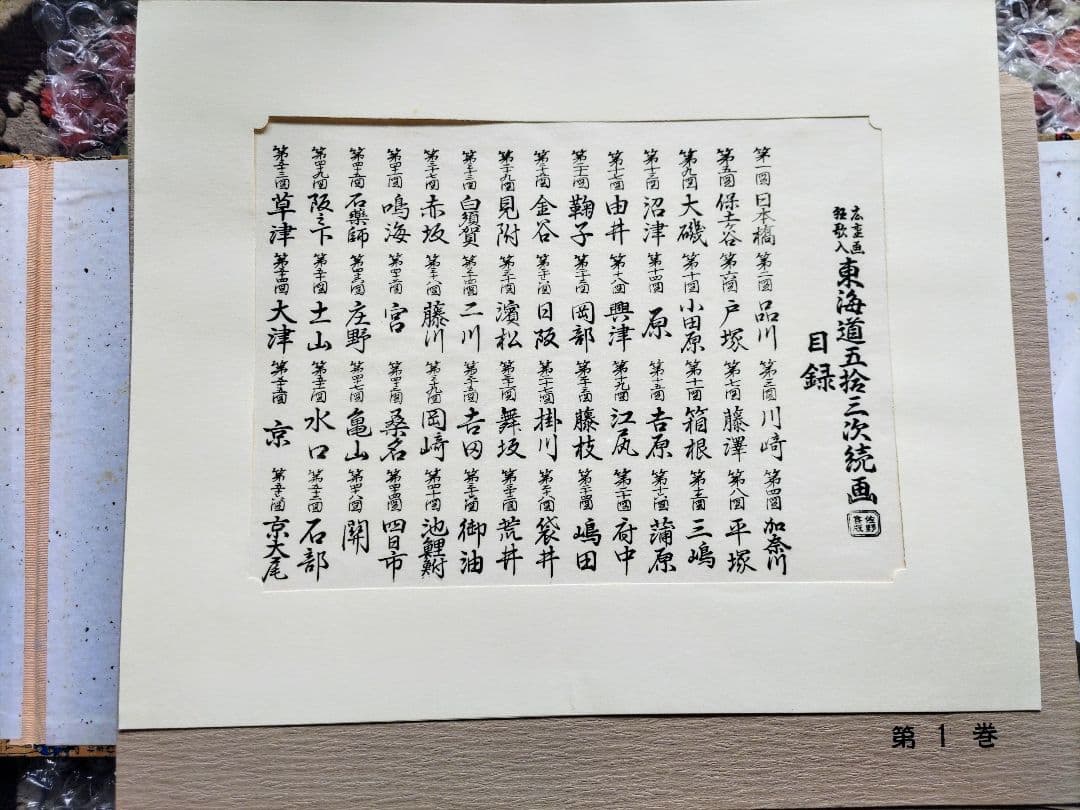 広重画
狂歌入
東海道五拾三次続画
目録
佐野
喜版
第一図 日本橋 第二図 品川 第三図 川崎 第四図 加奈川
第五図 保土ヶ谷 第六図 戸塚 第七図 藤澤 第八図 平塚
第九図 大磯 第十図 小田原 第十一図 箱根 第十二図 三嶋
第十三図 沼津 第十四図 原 第十五図 吉原 第十六図 蒲原
第十七図 由井 第十八図 興津 第十九図 江尻 第二十図 府中
第二十一図 鞠子 第二十二図 岡部 第二十三図 藤枝 第二十四図 嶋田
第二十五図 金谷 第二十六図 日阪 第二十七図 掛川 第二十八図 袋井
第二十九図 見附 第三十図 濱松 第三十一図 舞坂 第三十二図 荒井
第三十三図 白須賀 第三十四図 二川 第三十五図 吉田 第三十六図 御油
第三十七図 赤坂 第三十八図 藤川 第三十九図 岡崎 第四十図 池鯉鮒
第四十一図 鳴海 第四十二図 宮 第四十三図 桑名 第四十四図 四日市
第四十五図 石薬師 第四十六図 庄野 第四十七図 亀山 第四十八図 関
第四十九図 阪之下 第五十図 土山 第五十一図 水口 第五十二図 石部
第五十三図 草津 第五十四図 大津 第五十五図 京 第五十六図 京大尾
第1巻